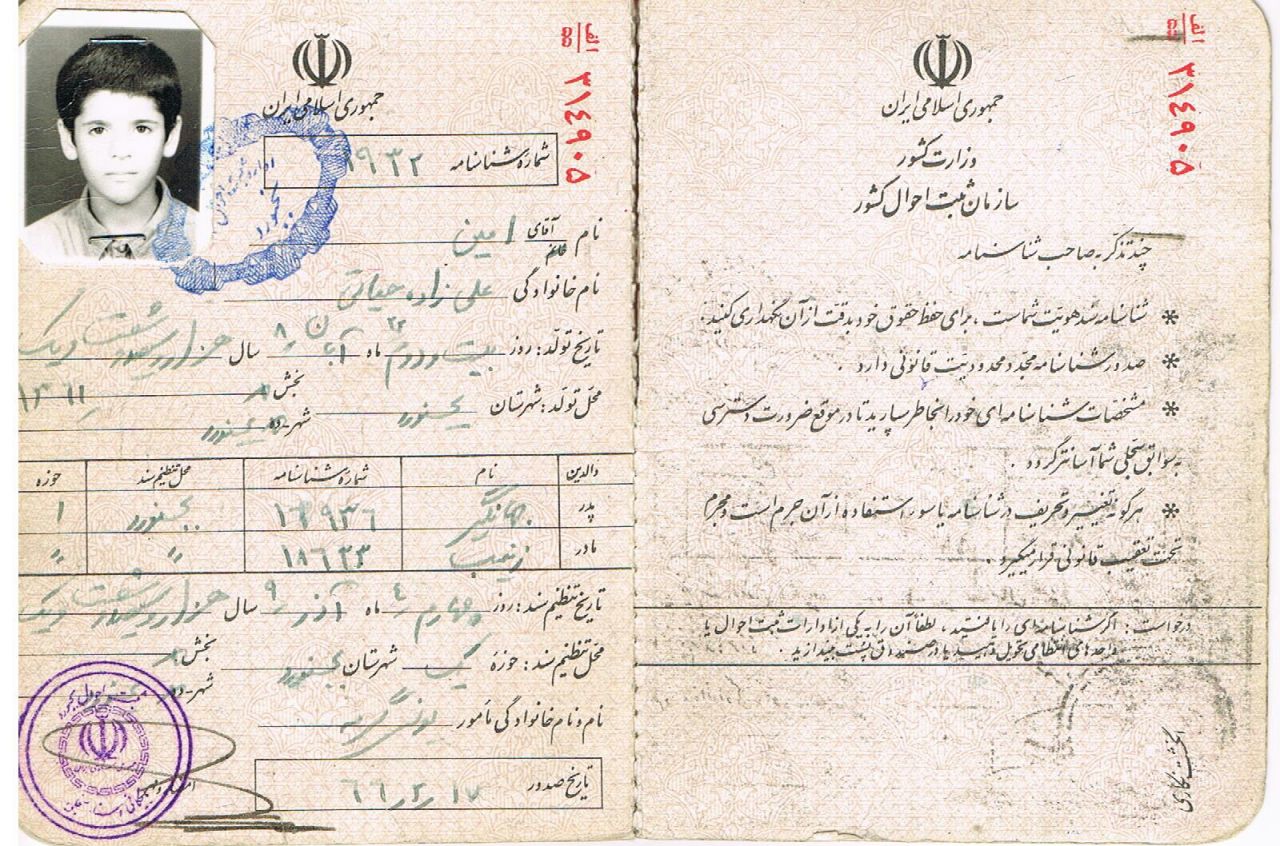 الف
۵۵
۳۱۴۹۰۵
جمهوری اسلامی ایران
وزارت کشور
سازمان ثبت احوال کشور
چند تذکر به صاحب شناسنامه
* شناسنامه سند هویت شماست ، برای حفظ حقوق خود بدقت از آن نگهداری کنید .
* صدور شناسنامه مجدد محدودیت قانونی دارد .
* مشخصات شناسنامه‌ای خود را بخاطر بسپارید تا در موقع ضرورت دسترسی
به سوابق سجلی شما آسانتر گردد .
* هرگونه تغییر و تحریف در شناسنامه یا سوء استفاده از آن جرم است و مجرم
تحت تعقیب قانونی قرار میگیرد .
درخواست : اگر شناسنامه‌ای را یافتید ، لطفاً آن را به یکی از ادارات ثبت احوال یا
واحدهای انتظامی تحویل دهید یا در صندوق پست بیندازید .
انگشت نگاری
الف
۵۵
۳۱۴۹۰۵
جمهوری اسلامی ایران
شماره شناسنامه ۱۹۳۲
نام آقای خانم امین
نام خانوادگی علی زاده حیاتی
تاریخ تولد : روز بیست و دوم ۲۲ ماه آبان ۸ سال هزار و سیصد و شصت و یک
۱۳۶۱
محل تولد : شهرستان بجنورد بخش
شهر - ده بجنورد
والدین نام شماره شناسنامه محل تنظیم سند حوزه
پدر جهانگیر بجنورد ۱
مادر زینب ۱۸۶۳۳ " "
تاریخ تنظیم سند : روز چهارم ۴ ماه آذر ۹ سال هزار و سیصد و شصت و یک
محل تنظیم سند : حوزه یک شهرستان بجنورد بخش
شهر - ده بجنورد
نام و نام خانوادگی مأمور
تاریخ صدور ۶۶/۲/۱۷